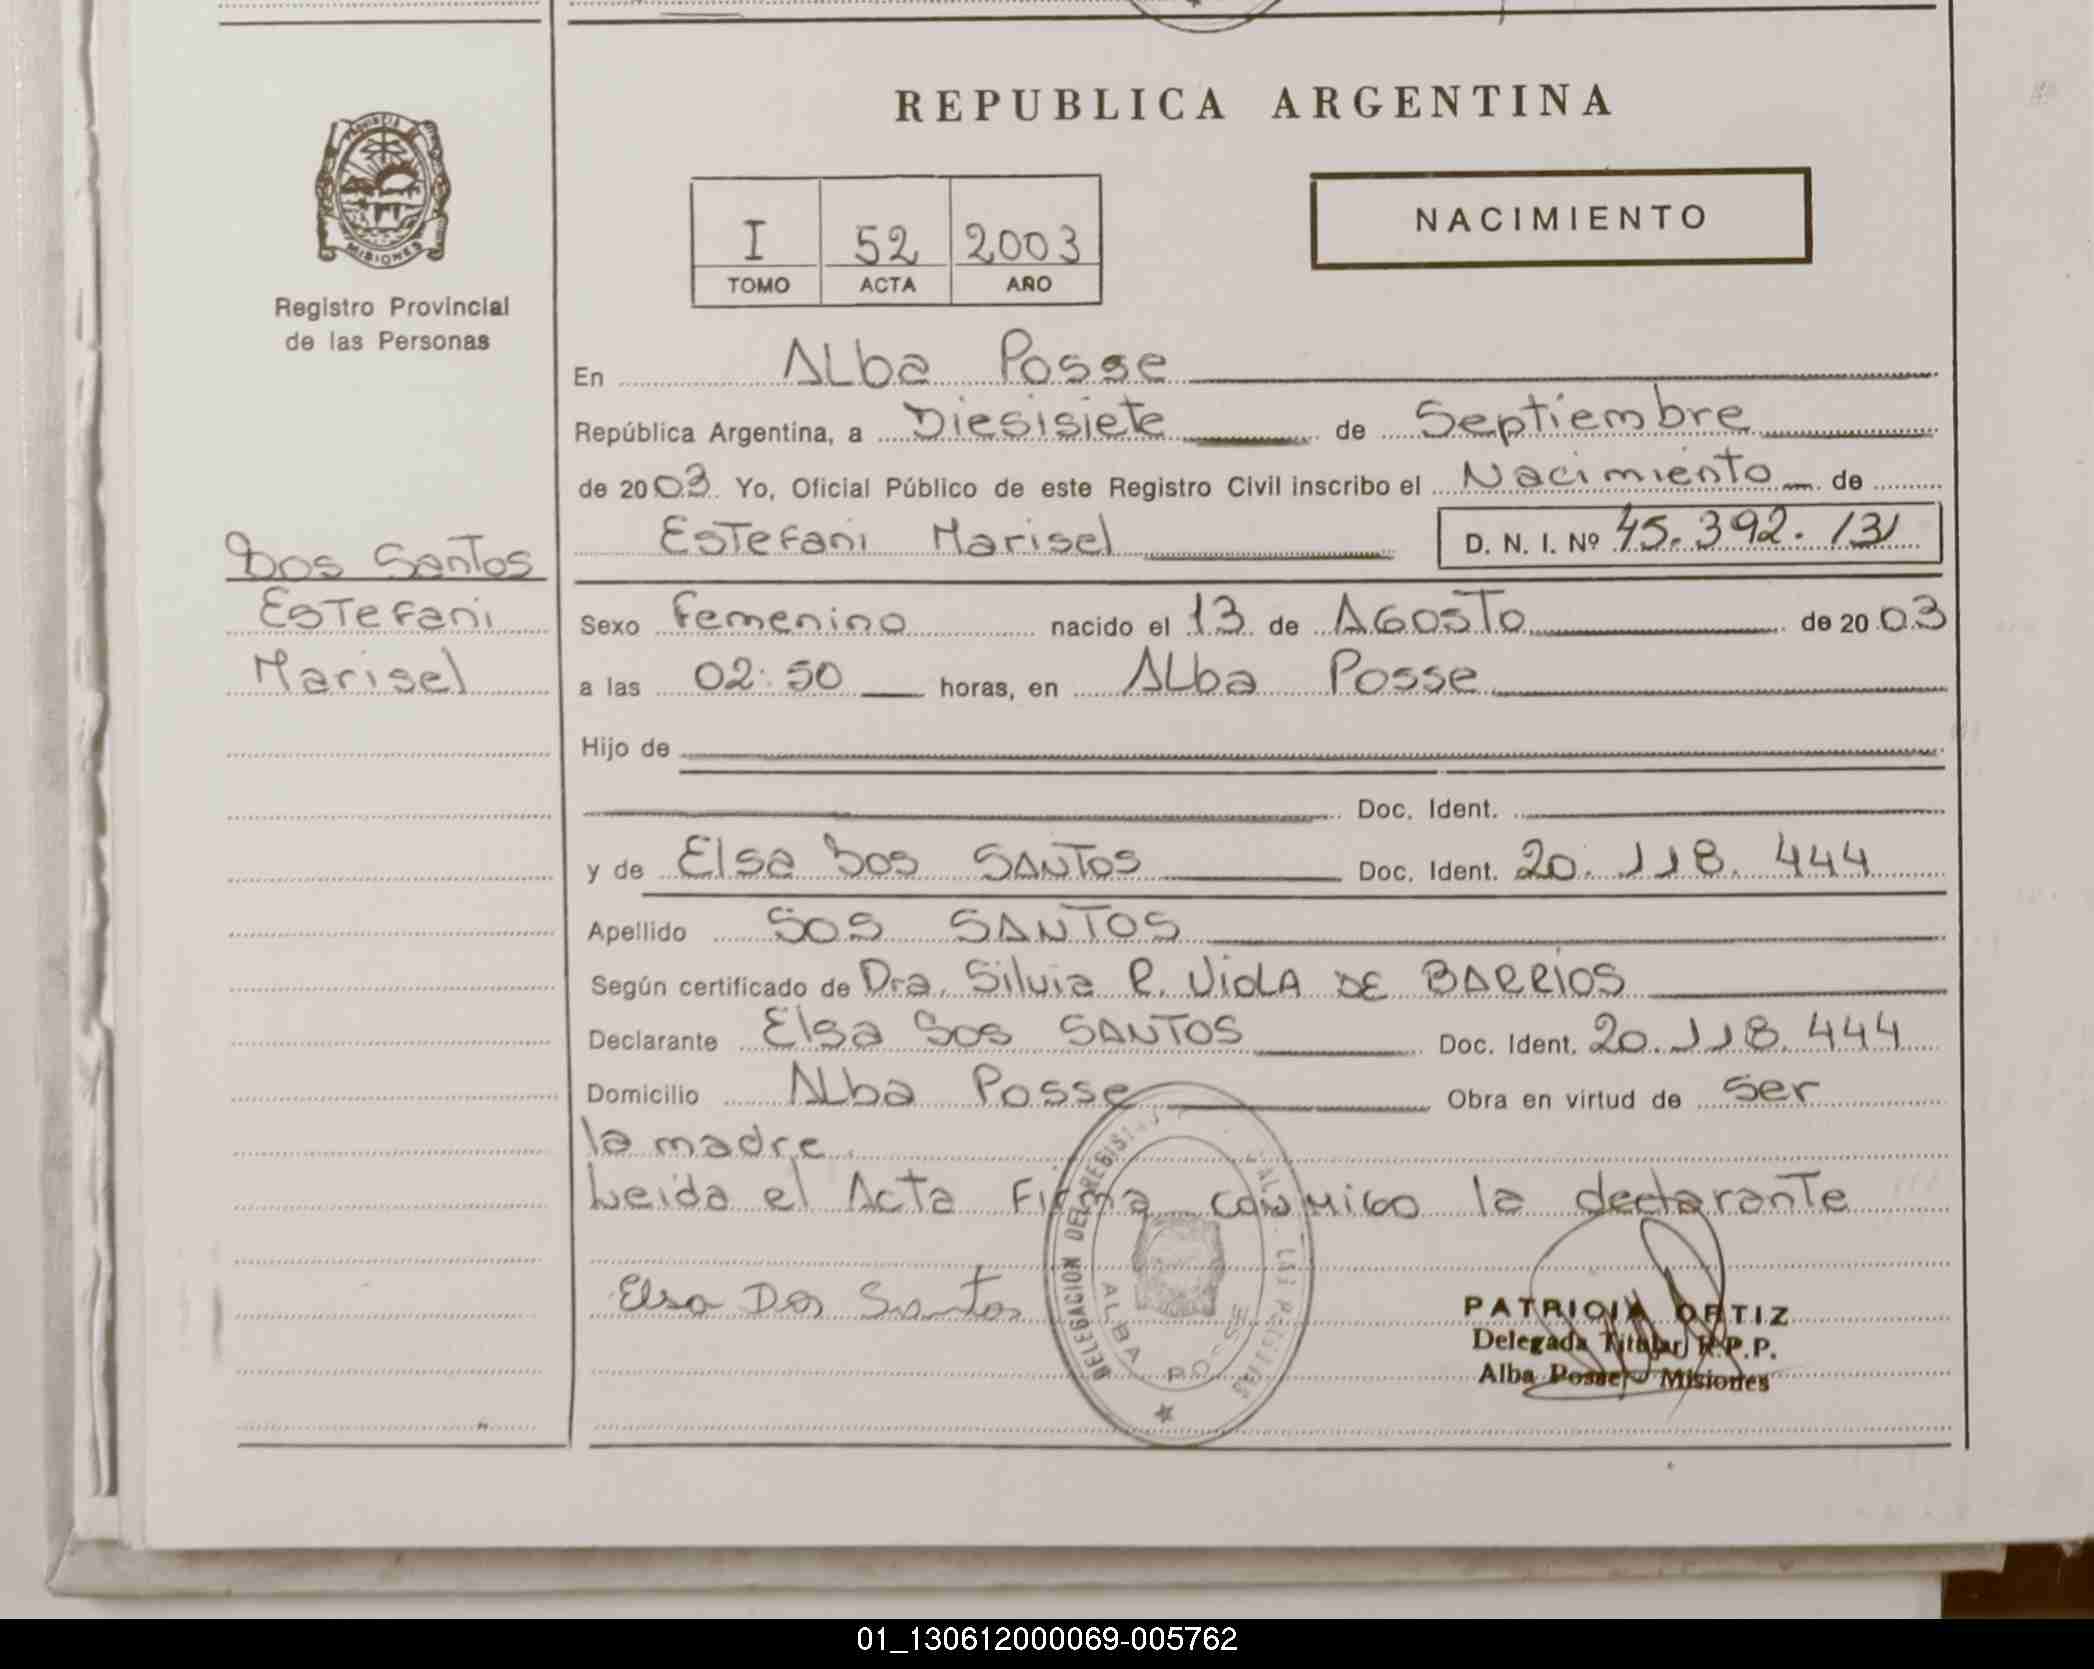 REPUBLICA ARGENTINA
PROVINCIA DE
MISIONES
Registro Provincial
de las Personas
I 52 2003
TOMO ACTA AÑO
NACIMIENTO
En Alba Posse
República Argentina, a Diesisiete de Septiembre
de 2003 Yo, Oficial Público de este Registro Civil inscribo el Nacimiento de
Estefani Marisel D. N. I. Nº 45.392.131
Dos Santos
Estefani
Marisel
Sexo Femenino nacido el 13 de Agosto de 2003
a las 02:50 horas, en Alba Posse
Hijo de
Doc. Ident.
y de Elsa Dos Santos Doc. Ident. 20.118.444
Apellido Dos Santos
Según certificado de Dra. Silvia R. Viola de Barrios
Declarante Elsa Dos Santos Doc. Ident. 20.118.444
Domicilio Alba Posse Obra en virtud de ser
la madre.
Leida el Acta Firma conmigo la declarante
Elsa Dos Santos
DELEGACION DEL REGISTRO DE LAS PERSONAS
ALBA POSSE
PATRICIA ORTIZ
Delegada Titular R.P.P.
Alba Posse - Misiones
01_130612000069-005762